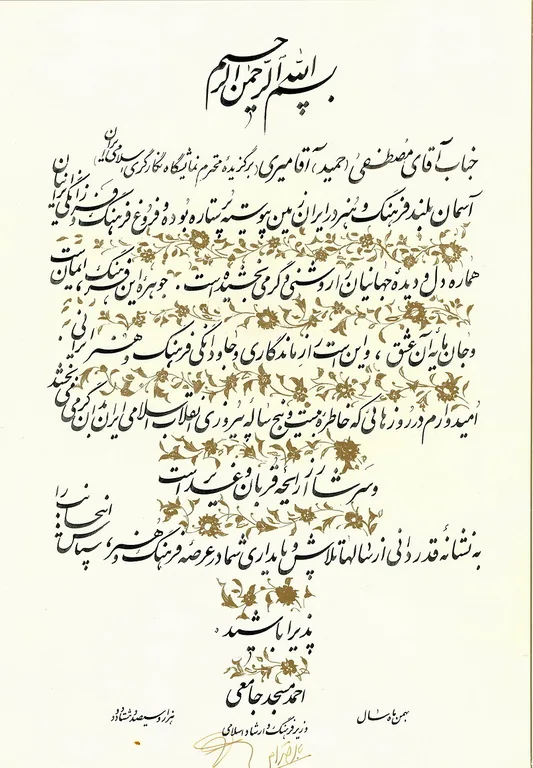 بسم الله الرحمن الرحیم
جناب آقای مصطفی (حمید) آقامیری (برگزیده محترم نمایشگاه نگارگری اسلامی ایران)
آسمان بلند فرهنگ و هنر در ایران زمین پیوسته پر ستاره بوده و فروغ فرهنگ و فرزانگی ایرانیان
هماره دل و دیده جهانیان را روشنی دگری بخشیده است. جوهره این فرهنگ، ایمان است
و جان مایه آن عشق، و این ست راز ماندگاری و جاودانگی فرهنگ و هنر ایرانی.
امیدوارم در روزهائی که خاطره بیست و پنج ساله پیروزی انقلاب اسلامی ایران بدان گرمی می بخشد
و سرشار از رایحه قربان و غدیر است
به نشانه قدردانی از سالها تلاش و پایداری شما در عرصه فرهنگ و هنر، سپاس اینجانب را
پذیرا باشید.
احمد مسجد جامعی
وزیر فرهنگ و ارشاد اسلامی
بهمن ماه سال هزار و سیصد و هشتاد و دو